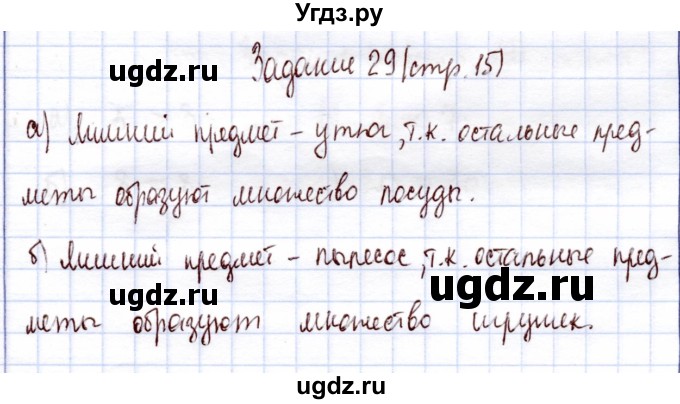 Угдз.ру
Задание 29 (стр. 15)
ugdz.ru ugdz.ru
а) Лишний предмет - утюг, т.к. остальные пред-
меты образуют множество посуды.
б) Лишний предмет - пылесос, т.к. остальные пред-
ugdz.ru ugdz.ru
меты образуют множество игрушек.
ugdz.ru